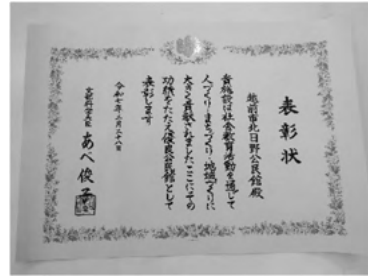 表彰状
越前市北日野公民館 殿
貴施設は社会教育活動を通して
人づくり・まちづくり・地域づくりに
大きく貢献されました ここにその
功績をたたえ優良公民館として
表彰します
令和七年二月二十八日
文部科学大臣 あべ 俊子